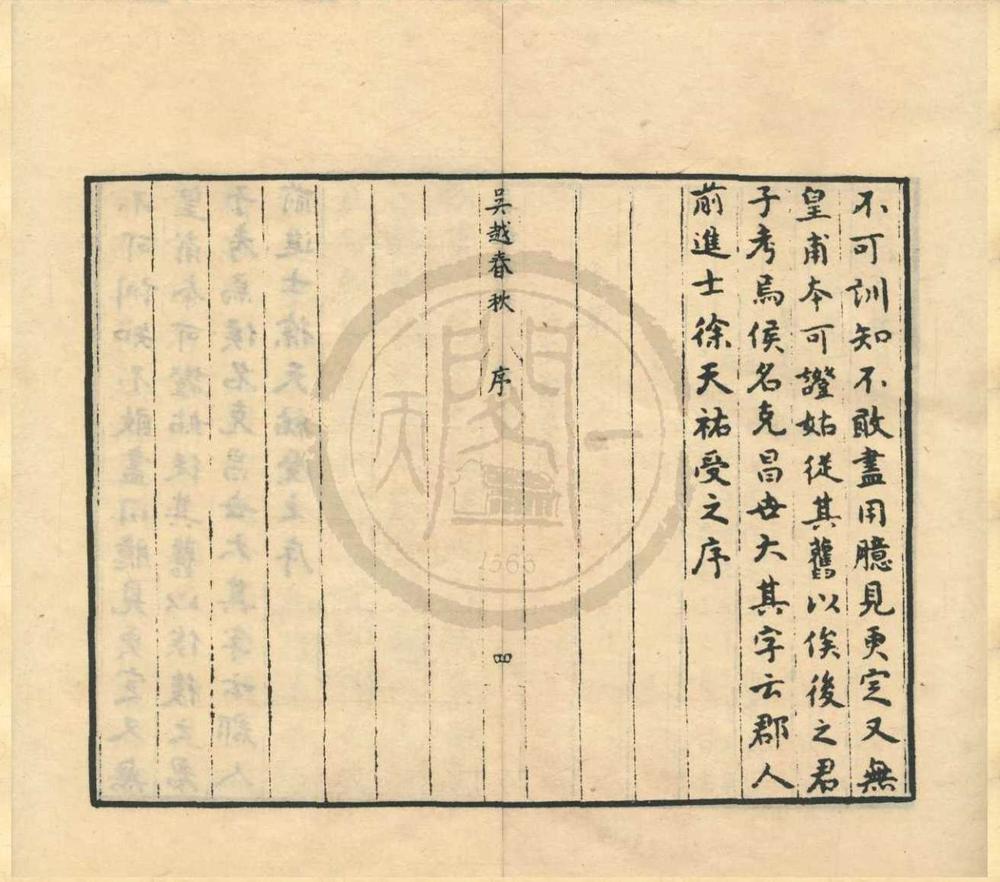 不可訓知不敢盡用臆見更定又無
皇甫本可證姑從其舊以俟後之君
子考焉侯名克昌世大其字云郡人
前進士徐天祐受之序
吳越春秋 序
四
天一閣
1566